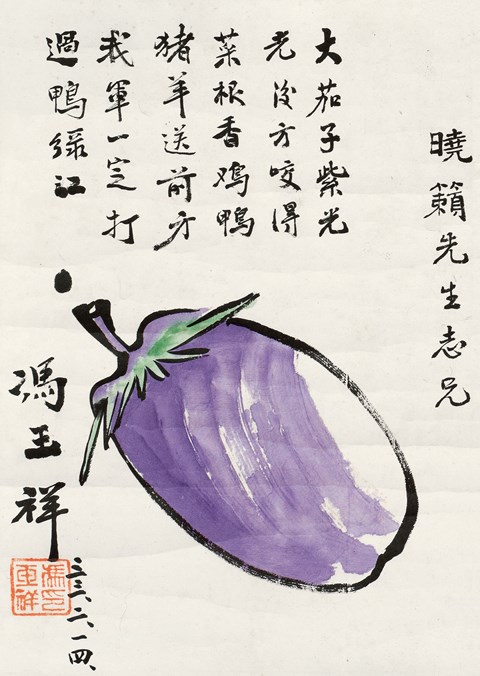 曉籟先生志兄
大茄子紫光
光後方咬得
菜根香鸡鴨
猪羊送前方
我軍一定打
過鴨綠江
馮玉祥
三三、六、一四、
馮印玉祥